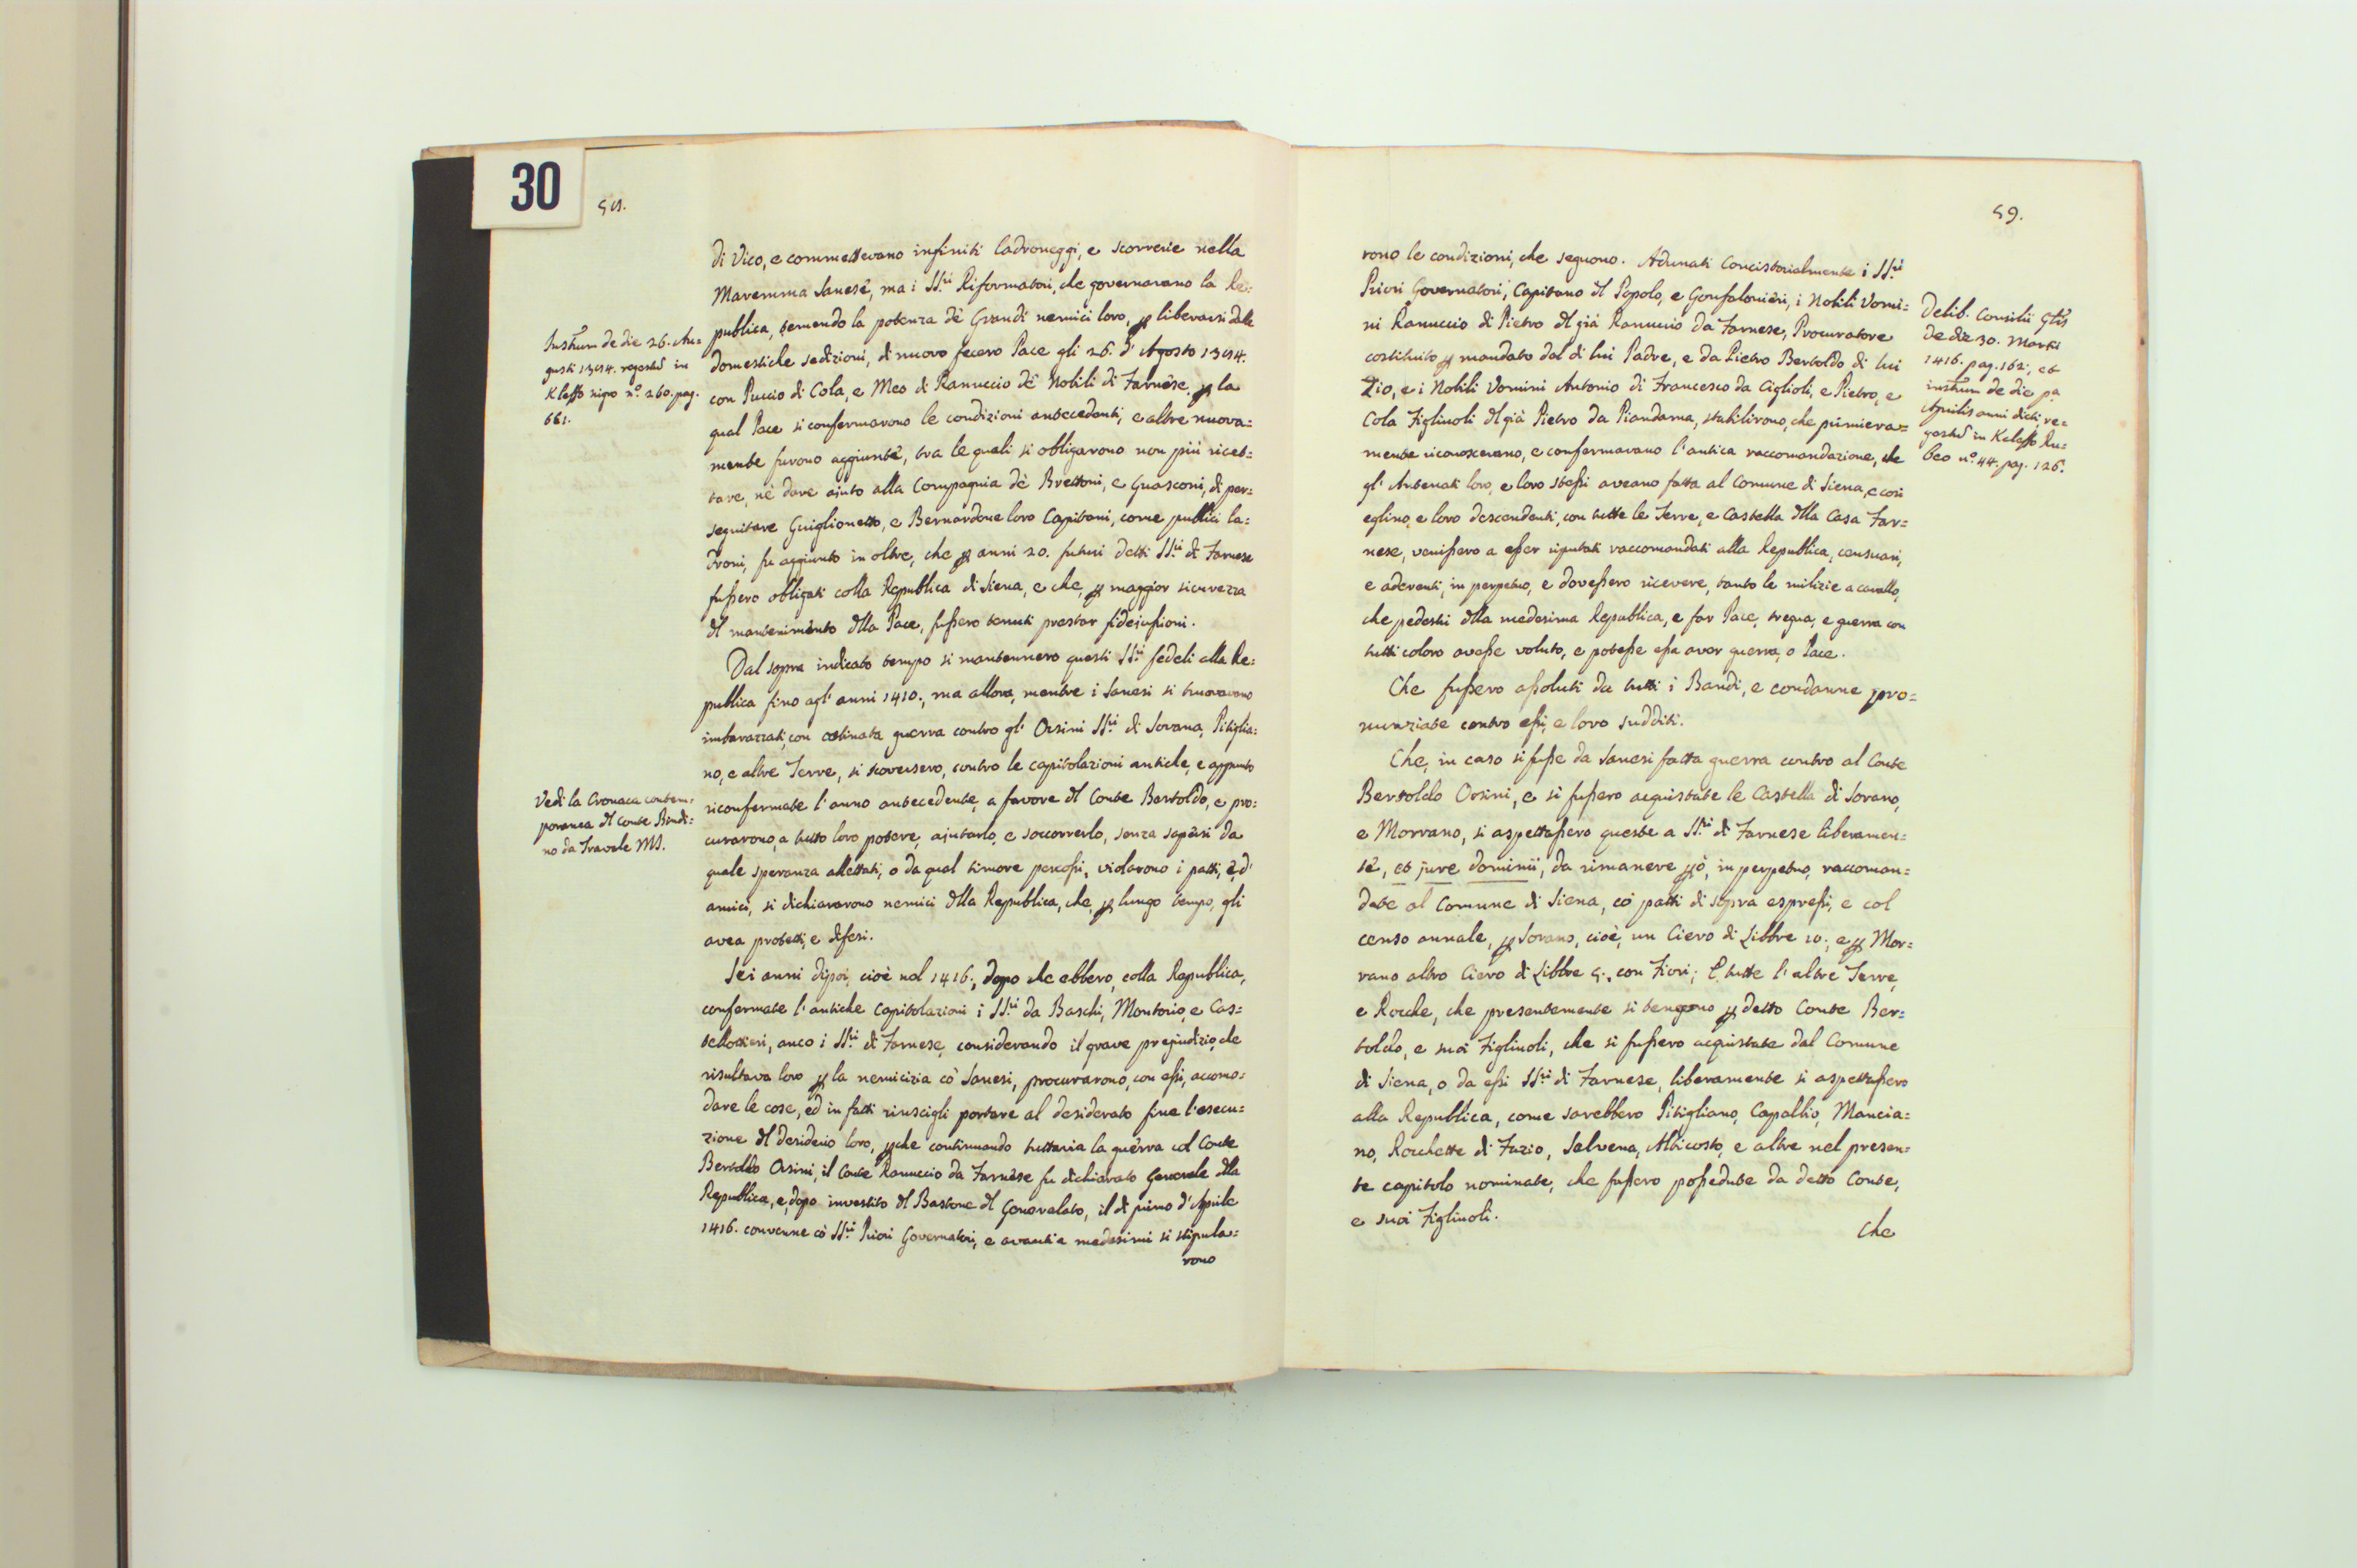 30
58.
di Vico, e commettevano infiniti ladroneggi, e scorrerie nella
Maremma Sanese, ma i SS.ri Riformatori, che governavano la Re=
publica, temendo la potenza de' Grandi nemici loro, p liberarsi dalle
domestiche sedizioni, di nuovo fecero Pace gli 26. d' Agosto 1384.
con Puccio di Cola, e Meo di Ranuccio de' Nobili di Farnese, p la
qual Pace si confermarono le condizioni antecedenti, e altre nuova=
mente furono aggiunte, tra le quali si obligarono non più ricet=
tare, nè dare ajuto alla Compagnia de' Brettoni, e Guasconi, di per=
seguitare Guiglionetto, e Bernardone loro Capitani, come publici la=
droni, fu aggiunto in oltre, che p anni 20. futuri detti SS.ri di Farnese
fussero obligati colla Republica di Siena, e che, p maggior sicurezza
dl mantenimento dlla Pace, fussero tenuti prestar fidejussioni.
Instrum de die 26. Au=
gusti 1384. regestu in
Kleffo nigro n.o 260. pag.
661.
Dal sopra indicato tempo si mantennero questi SS.ri fedeli alla Re=
publica fino agl' anni 1410., ma allora, mentre i Sanesi si truovavano
imbarazzati, con ostinata guerra contro gl' Orsini SS.ri di Sovana, Pitiglia=
no, e altre Terre, si scoversero, contro le capitolazioni antiche, e appunto
riconfermate l' anno antecedente, a favore dl Conte Bertoldo, e pro=
curarono, a tutto loro potere, ajutarlo, e soccorrerlo, senza sapersi da
quale speranza allettati, o da qual timore percossi, violarono i patti, e, d'
amici, si dichiararono nemici dlla Republica, che, p lungo tempo, gli
avea protetti, e difesi.
Vedi la Cronaca contem=
poranea dl Conte Bindi=
no da Travale MS.
Sei anni dipoi, cioè nel 1416., dopo che ebbero, colla Republica,
confermate l' antiche Capitolazioni i SS.ri da Baschi, Montorio, e Cas=
tellottieri, anco i SS.ri di Farnese, considerando il grave prejudizio, che
risultava loro p la nemicizia co' Sanesi, procurarono, con essi, accomo=
dare le cose, ed in fatti riuscigli portare al desiderato fine l' esecu=
zione dl desiderio loro, pche continuando tuttavia la guerra col Conte
Bertoldo Orsini, il Conte Ranuccio da Farnese fu dichiarato Generale dlla
Republica, e, dopo investito dl Bastone dl Generalato, il dì primo d' Aprile
1416. convenne co' SS.ri Priori Governatori, e avanti a medesimi si stipula=
rono
59.
rono le condizioni, che seguono. Adunati Concistorialmente i SS.ri
Priori Governatori, Capitano dl Popolo, e Gonfalonieri, i Nobili Uomi=
ni Ranuccio di Pietro dl già Ranuccio da Farnese, Procuratore
costituito p mandato dal di lui Padre, e da Pietro Bertoldo di lui
Zio, e i Nobili Uomini Antonio di Francesco da Ciglioli, e Pietro, e
Cola Figliuoli dl già Pietro da Piandama, stabilirono, che primiera=
mente riconoscevano, e confermavano l' antica raccomandazione, che
gl' Antenati loro, e loro stessi aveano fatta al Comune di Siena, e così
eglino, e loro descendenti, con tutte le Terre, e Castella dlla Casa Far=
nese, venissero a esser riputati raccomandati alla Republica, censuari,
e aderenti, in perpetuo, e dovessero ricevere, tanto le milizie a cavallo,
che pedestri dlla medesima Republica, e far Pace, tregua, e guerra con
tutti coloro avesse voluto, e potesse essa aver guerra, o Pace.
Delib. Consilii Gtis
de die 30. Martii
1416. pag. 162., et
instrum de die pa
Aprilis anni dicti, re=
gestu in Kaleffo Ru=
beo n.o 44. pag. 126.
Che fussero assoluti da tutti i Bandi, e condanne pro=
nunziate contro essi, e loro sudditi.
Che, in caso si fusse da Sanesi fatta guerra contro al Conte
Bertoldo Orsini, e si fussero acquistate le Castella di Sorano,
e Morrano, si aspettassero queste a SS.ri di Farnese liberamen=
te, et jure dominii, da rimanere pò, in perpetuo, raccoman=
date al Comune di Siena, co' patti di sopra espressi, e col
censo annale, p Sorano, cioè, un Ciero di Libbre 10., e p Mor=
rano altro Ciero di Libbre 5., con Fiori; E tutte l' altre Terre,
e Rocche, che presentemente si tengono p detto Conte Ber=
toldo, e suoi Figliuoli, che si fussero acquistate dal Comune
di Siena, o da essi SS.ri di Farnese, liberamente si aspettassero
alla Republica, come sarebbero Pitigliano, Capalbio, Mancia=
no, Rocchette di Fazio, Selvena, Altricosto, e altre nel presen=
te capitolo nominate, che fussero possedute da detto Conte,
e suoi Figliuoli.
Che